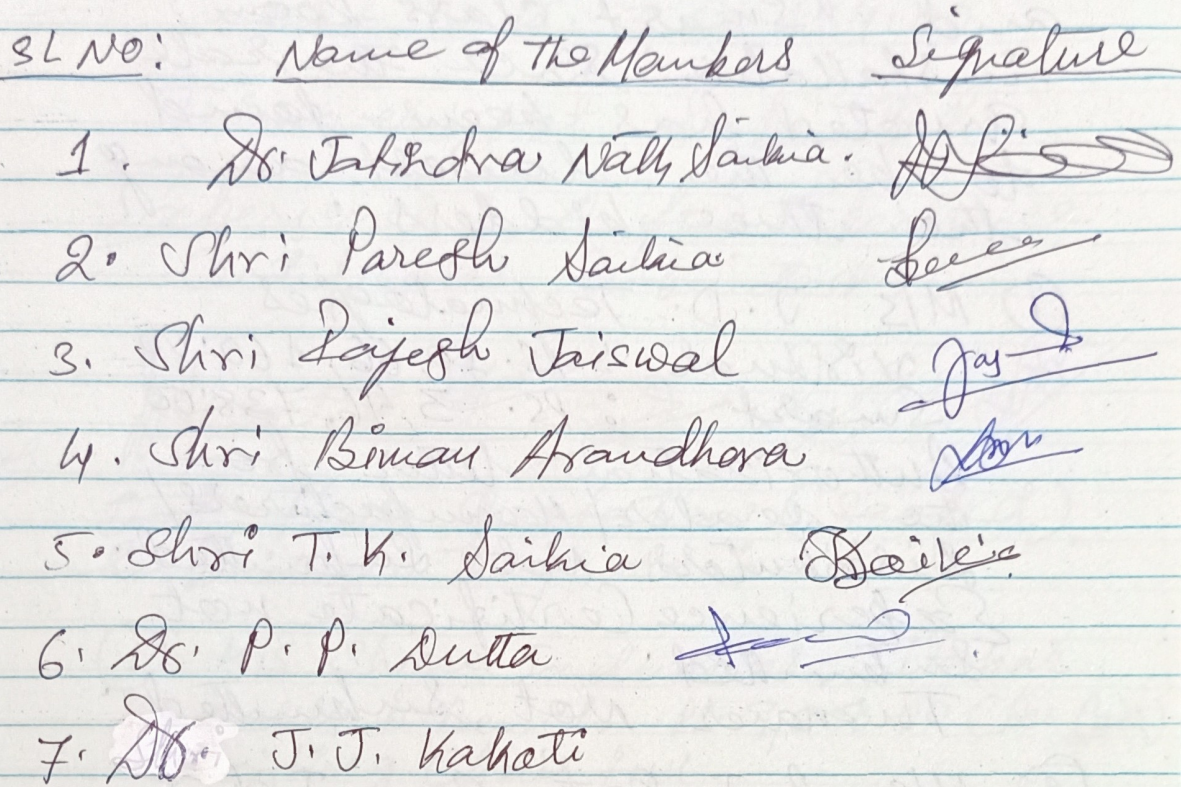 SL NO: Name of the Mambers Signature
1. Dr. Jatindra Nath Saikia.
2. Shri Paresh Saikia
3. Shri Rajesh Jaiswal
4. Shri Biman Arandhara
5. Shri T. K. Saikia Saikia
6. Dr. P. P. Dutta
7. Dr. J. J. Kakati